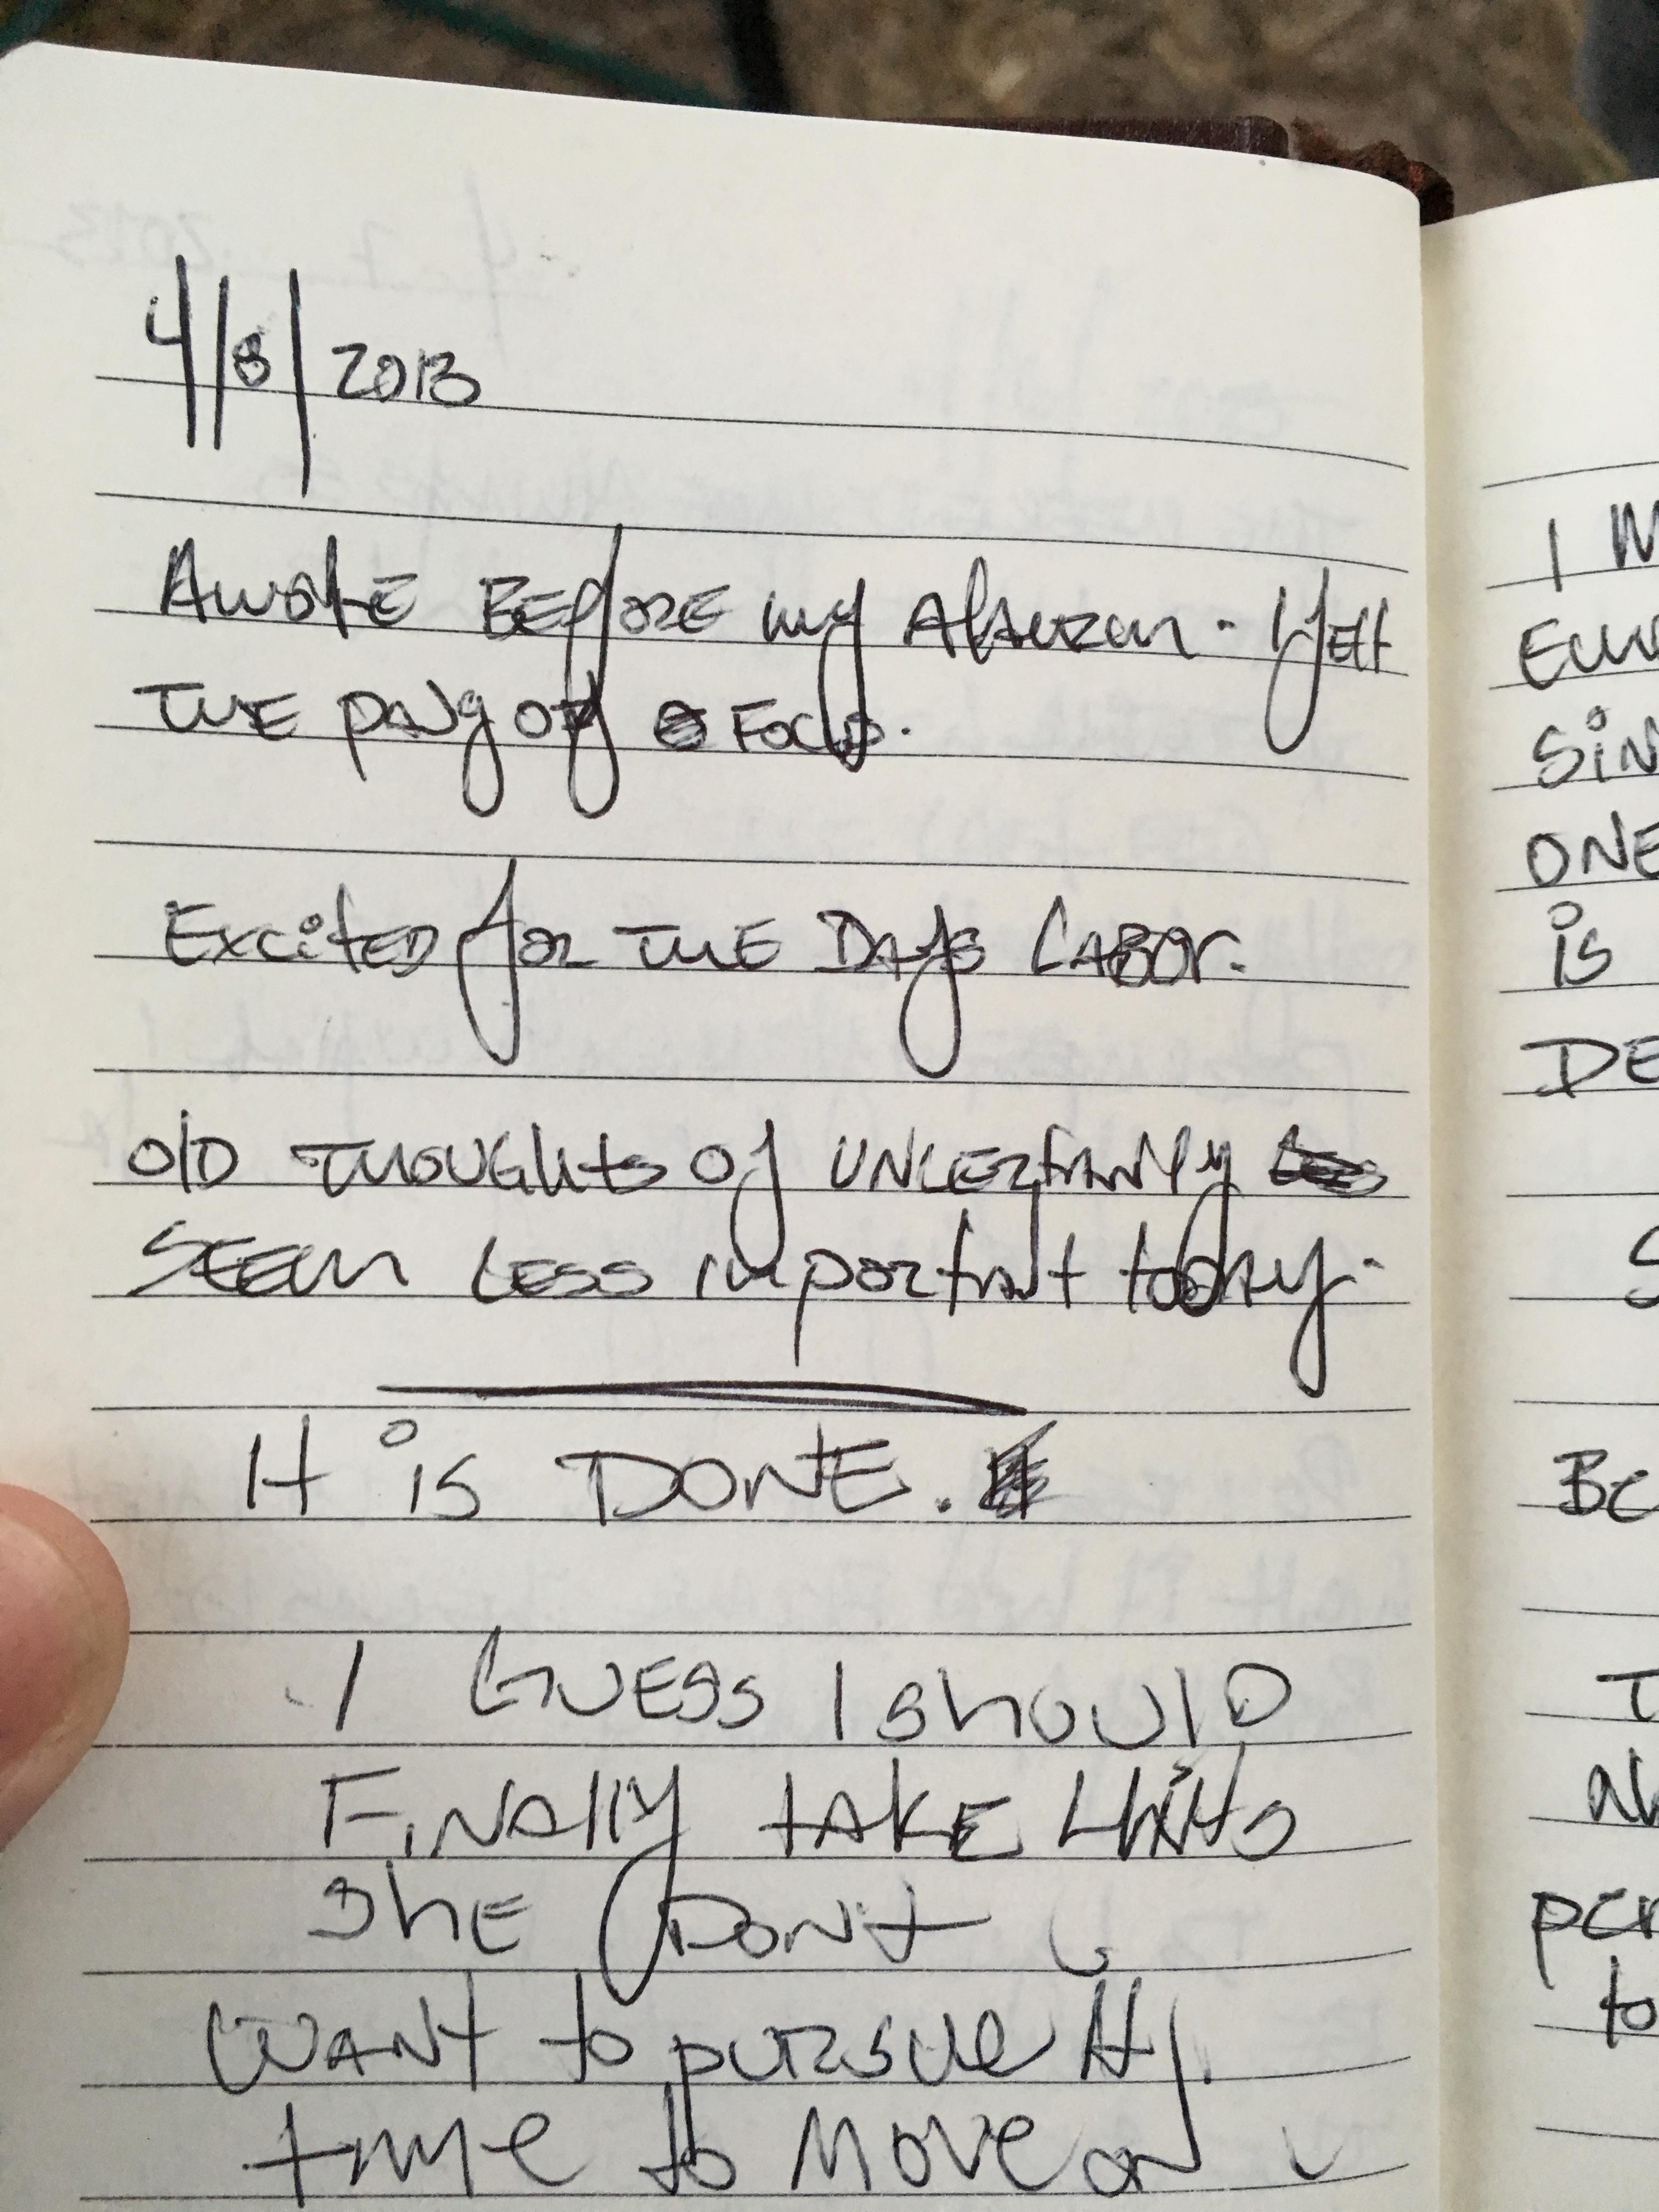 4/8/2013
AWOKE BEFORE my AlARM. Felt
THE PANG OF FOCUS.
EXCITED for THE DAYS LABOR.
OlD THOUGHts Of UNCERtAINty
SEEM LESS IMportANt today.
It is DONE.
I GUESS I shoulD
FiNAlly tAKE HiNts
ShE DoNt
WANT to pursue it.
time to Move on
I M
SiN
ONE
is
DE
S
BE
T
Al
per
to